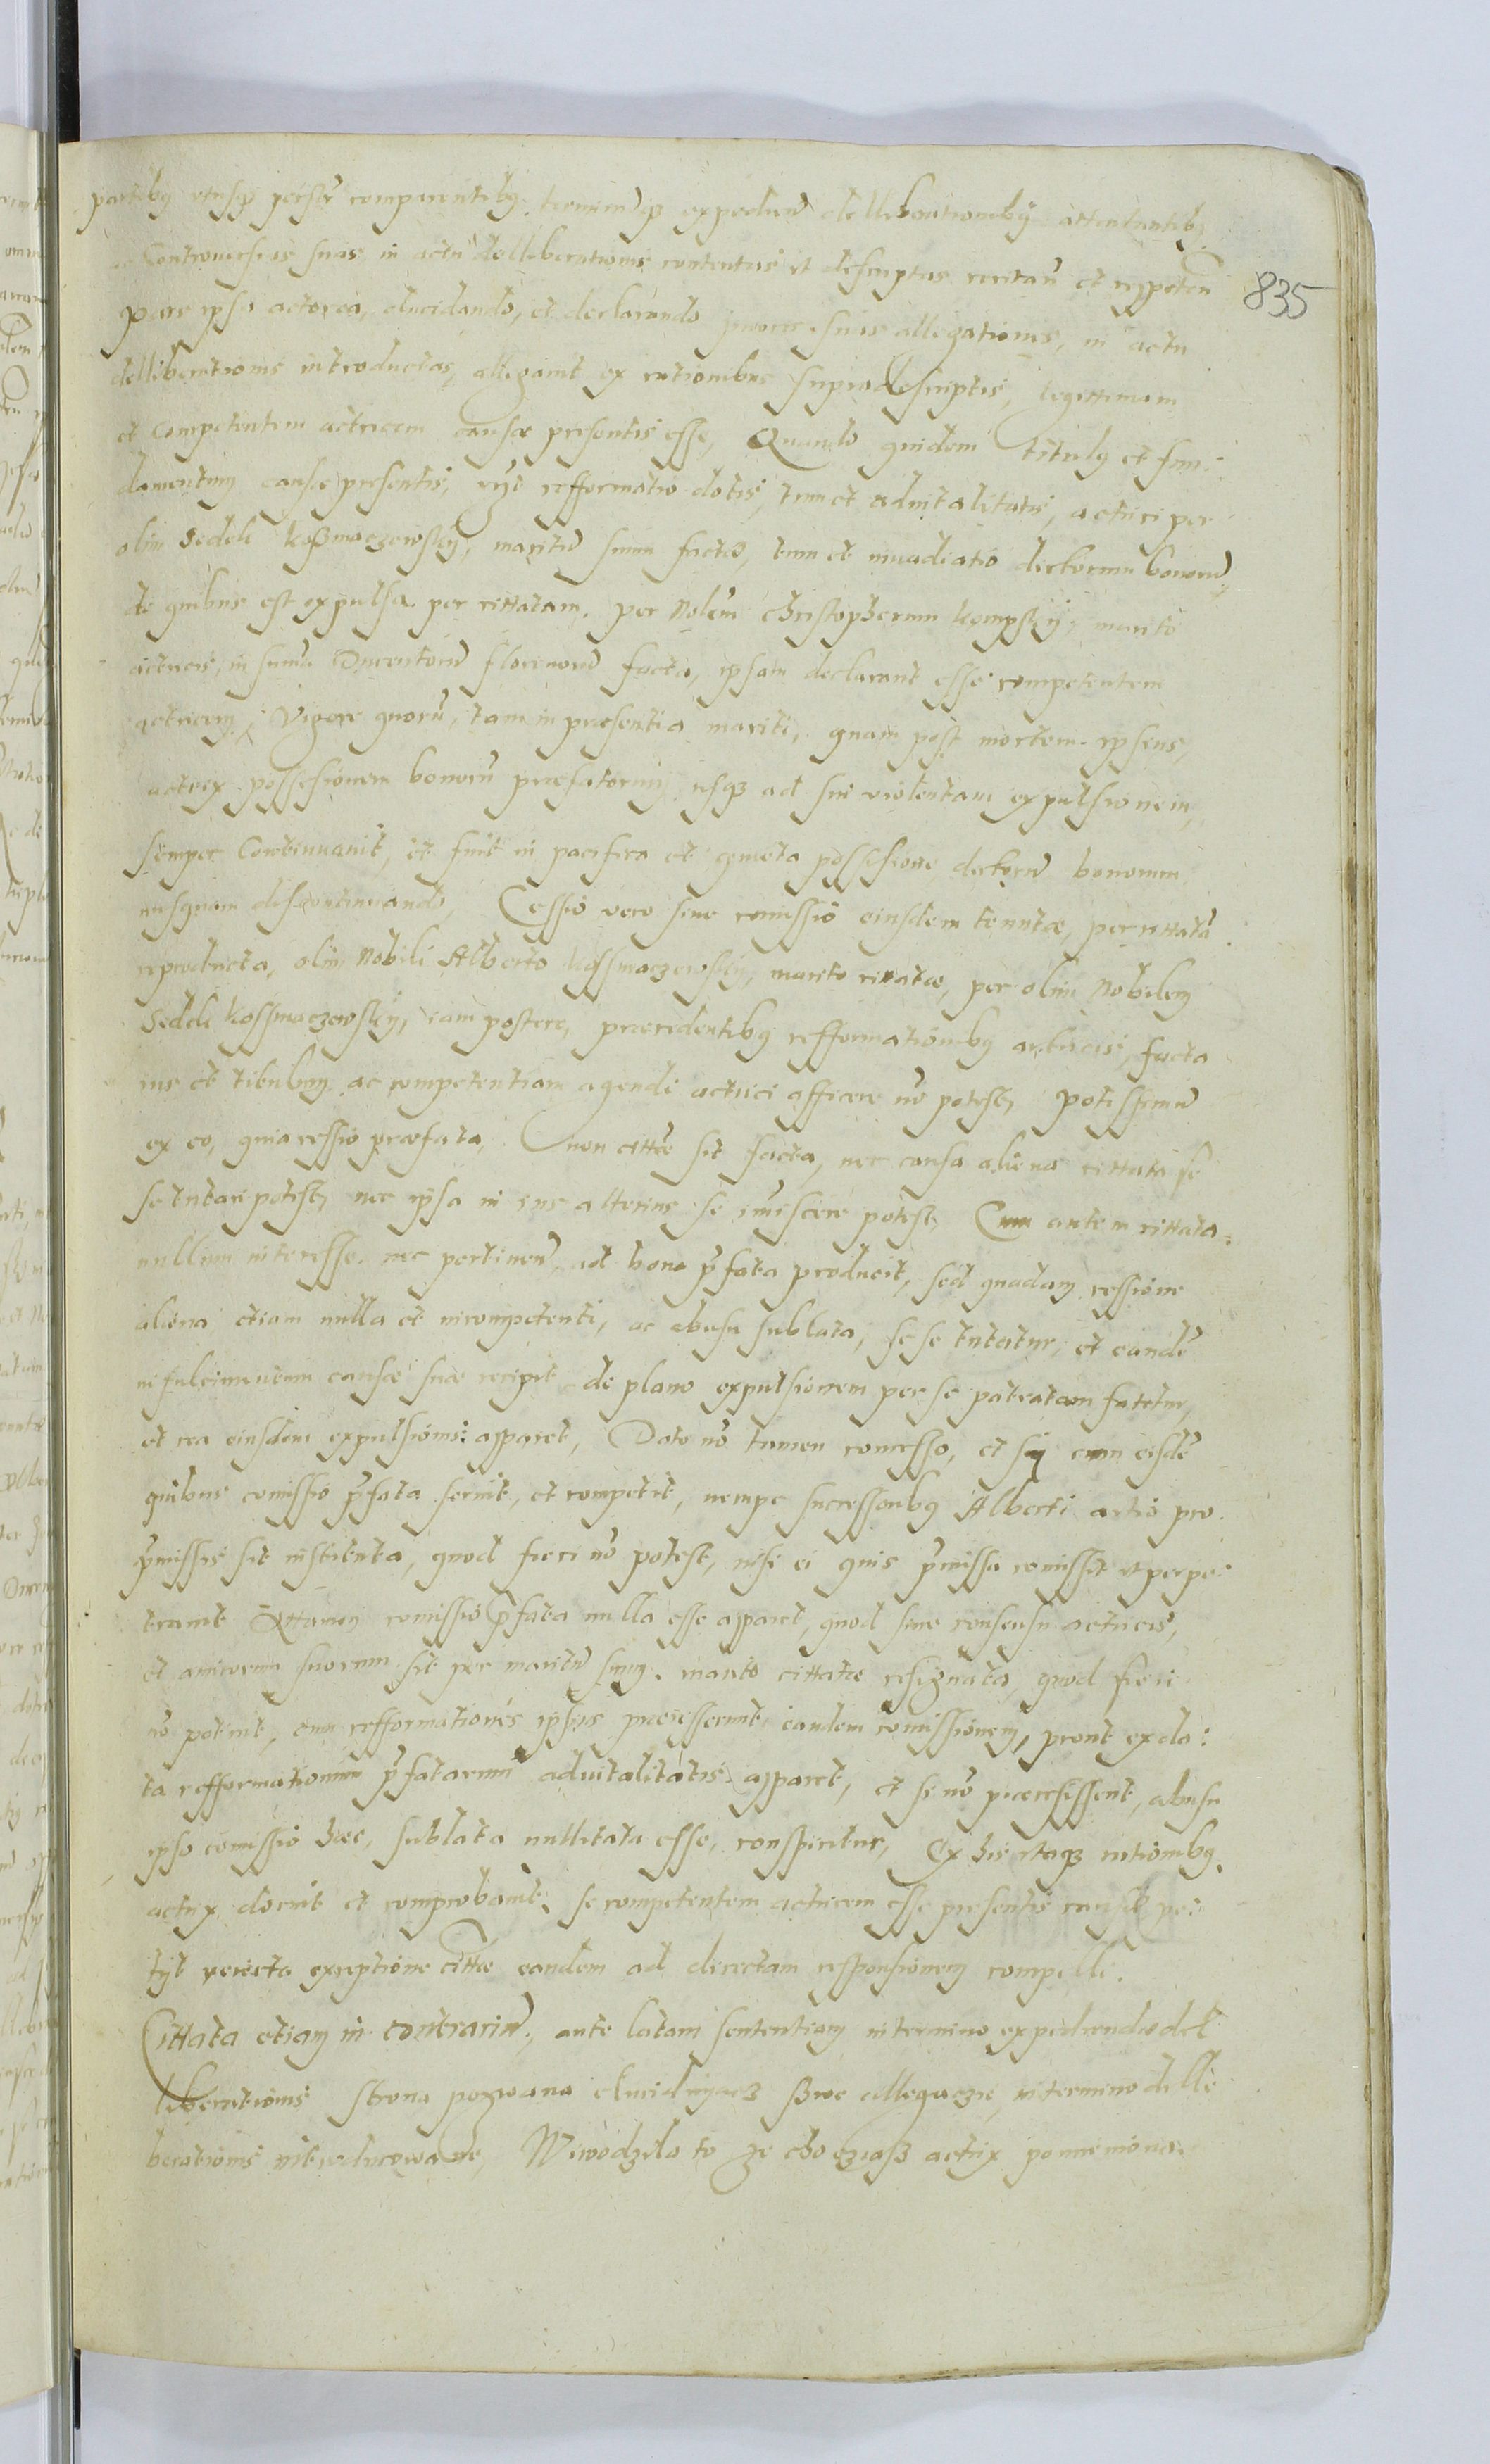 partibus utrisque persr comparentibus, terminumque expediend dellibeationibus attentantibs
ac controuersias suas in actu delliberationis contentas et descriptas recitan et reppeten
835
Pars ipsa actorea, elucidando, et declarando priores suas allegationes, in actu
delliberationis introductas, allegauit ex rationibus supradescriptis, legittimam
et competentem actricem causæ presentis esse, Quando quidem titulus et fun:
damentum causæ presentis, est refformatio dotis, tum et aduitalitatis, actrici per
olim Sedeli Kossmaczewskÿ, maritū suum factā, tum et inuadiatio dictorum bonorū
de quibus est expulsa per cittatam. per Nobīem Christopherum Kempskÿ, marito
actricis, in summa Ducentorū florenorū facta, ipsam declarant esse competentem
actricem, Vigore quorū, tam in præsentia mariti, quam post mortem ipsius,
actrix possesionem bonorū præfatorum, usque ad sui violentam expulsionem,
semper Continuauit, et fuit in pacifica et quieta possesione dictorū bonorum
nusquam discontinuando, Cessio vero siue comissio eiusdem tenutæ, per cittatā
reproducta, olim Nobili Alberto Kossmaczewskÿ, marito citatæ, per olim Nobilem
Sedeli Kossmaczewskÿ, iam postere, præcedentibus refformationibus actricis, facta
ius et titulum ac competentiam agendi actrici afficere nō potest, Potissimū
ex eo, quia cessio præfata, non cittæ sit facta, nec causa aliena cittata se
se tutari potest, nec ipsa in ius alterius se imiscere potest, Cum autem cittata
nullum interesse nec pertinen ad bona p̄fata producit, sed quadam cessione
aliena etiam nulla et incompetenti, ac abusu sublata, sese tutatur, et eandē
in fulcimentum causæ suæ recipit de plano expulsionem per se patratam fatetur,
et rea eiusdem expulsionis apparet, Dato nō tamen concesso, et sÿ cum eisdē
quibus comissio p̄fata seruit, et competit, nempe successoribus Alberti actio pro
p̄missis sit instituta, quod fieri nō potest, nisi ei quis p̄missa comissit et perpe:
trauit Attamen comissio p̄fata nulla esse apparet, quod sine consensu actricis,
et amicorum suorum sit per maritū suum, marito cittatæ resignata, quod fieri
nō potuit, cum refformationes ipsius præcesserunt eandem comissionem, prout ex da:
ta refformationum p̄fatarum aduitalitatis apparet, et si nō præcesissent, abusu
ipso comissio hæc, sublata nullitata esse, conspicitur, Ex his itaque rationibus
actrix docuit et comprobauit, se competentem actricem esse presentis causæ pe:
tÿt reiecta exceptione cittæ eandem ad directam responsionem compelli.
Cittata etiam in contrariū, ante latam sententiam in termino expediendæ del
liberationis strona pozwana eluciduyącz swe allegaczie, in termino delli
berationis introducowane, Wiwodziła to ze choćziasz actrix pomieniona